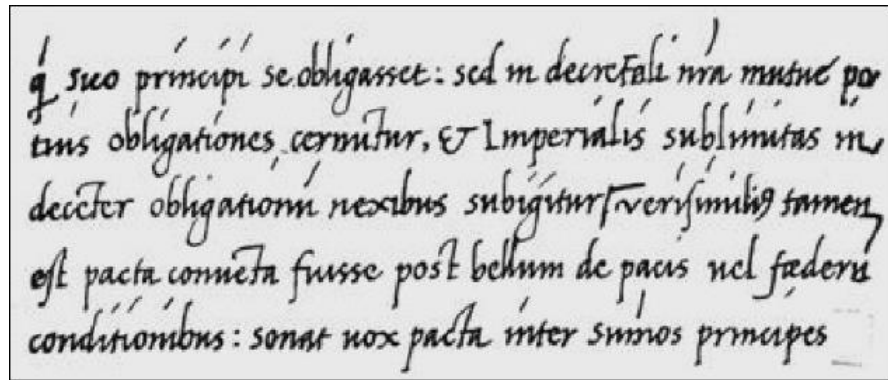 suo principi se obligasset: sed in decretali nr̃a mutue po
tius obligationes cernũtur, & Imperialis sublimitas in
decẽter obligationũ nexibus subigitur verisimiliꝰ tamen
est pacta conuẽta fuisse post bellum de pacis uel fœderũ
conditionibus: sonat uox pacta inter sum̃os principes